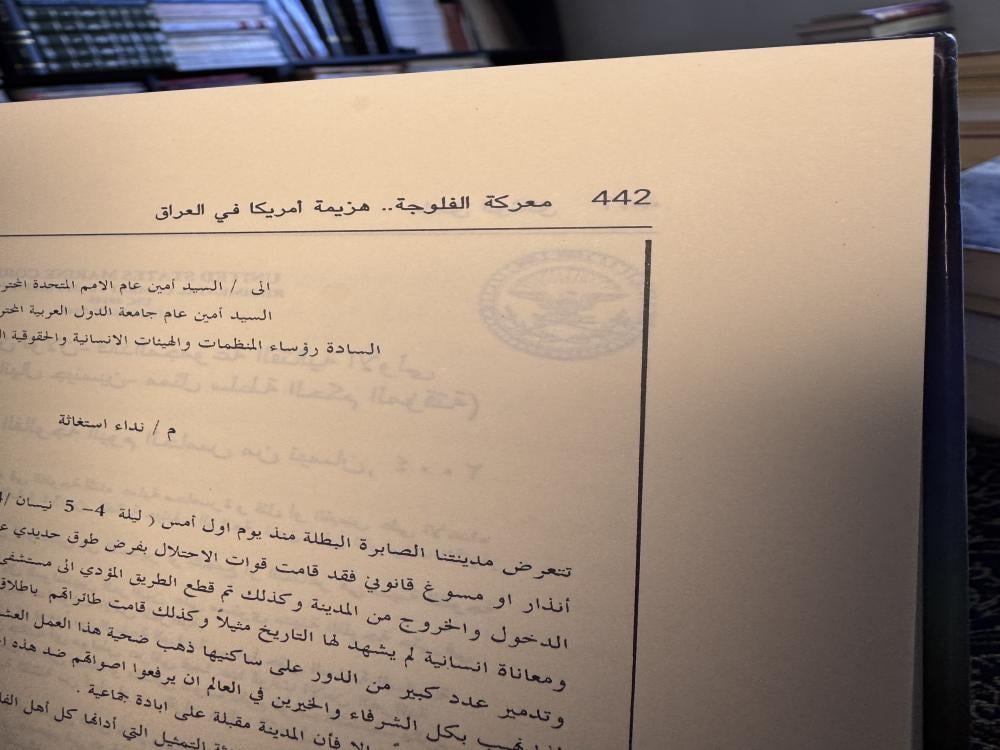 442 معركة الفلوجة.. هزيمة أمريكا في العراق
الى / السيد أمين عام الامم المتحدة
السيد أمين عام جامعة الدول العربية
السادة رؤساء المنظمات والهيئات الانسانية والحقوقية
م / نداء استغاثة
تتعرض مدينتنا الصابرة البطلة منذ يوم اول أمس ( ليلة 4– 5 نيسان /
أنذار او مسوغ قانوني فقد قامت قوات الاحتلال بفرض طوق حديدي
الدخول والخروج من المدينة وكذلك تم قطع الطريق المؤدي الى مستشفى
ومعاناة انسانية لم يشهد لها التاريخ مثيلاً وكذلك قامت طائراتهم باطلاق
وتدمير عدد كبير من الدور على ساكنيها ذهب ضحية هذا العمل
نهيب بكل الشرفاء والخيرين في العالم ان يرفعوا اصواتهم ضد هذه
فأن المدينة مقبلة على ابادة جماعية .
التمثيل التي أدانها كل أهل